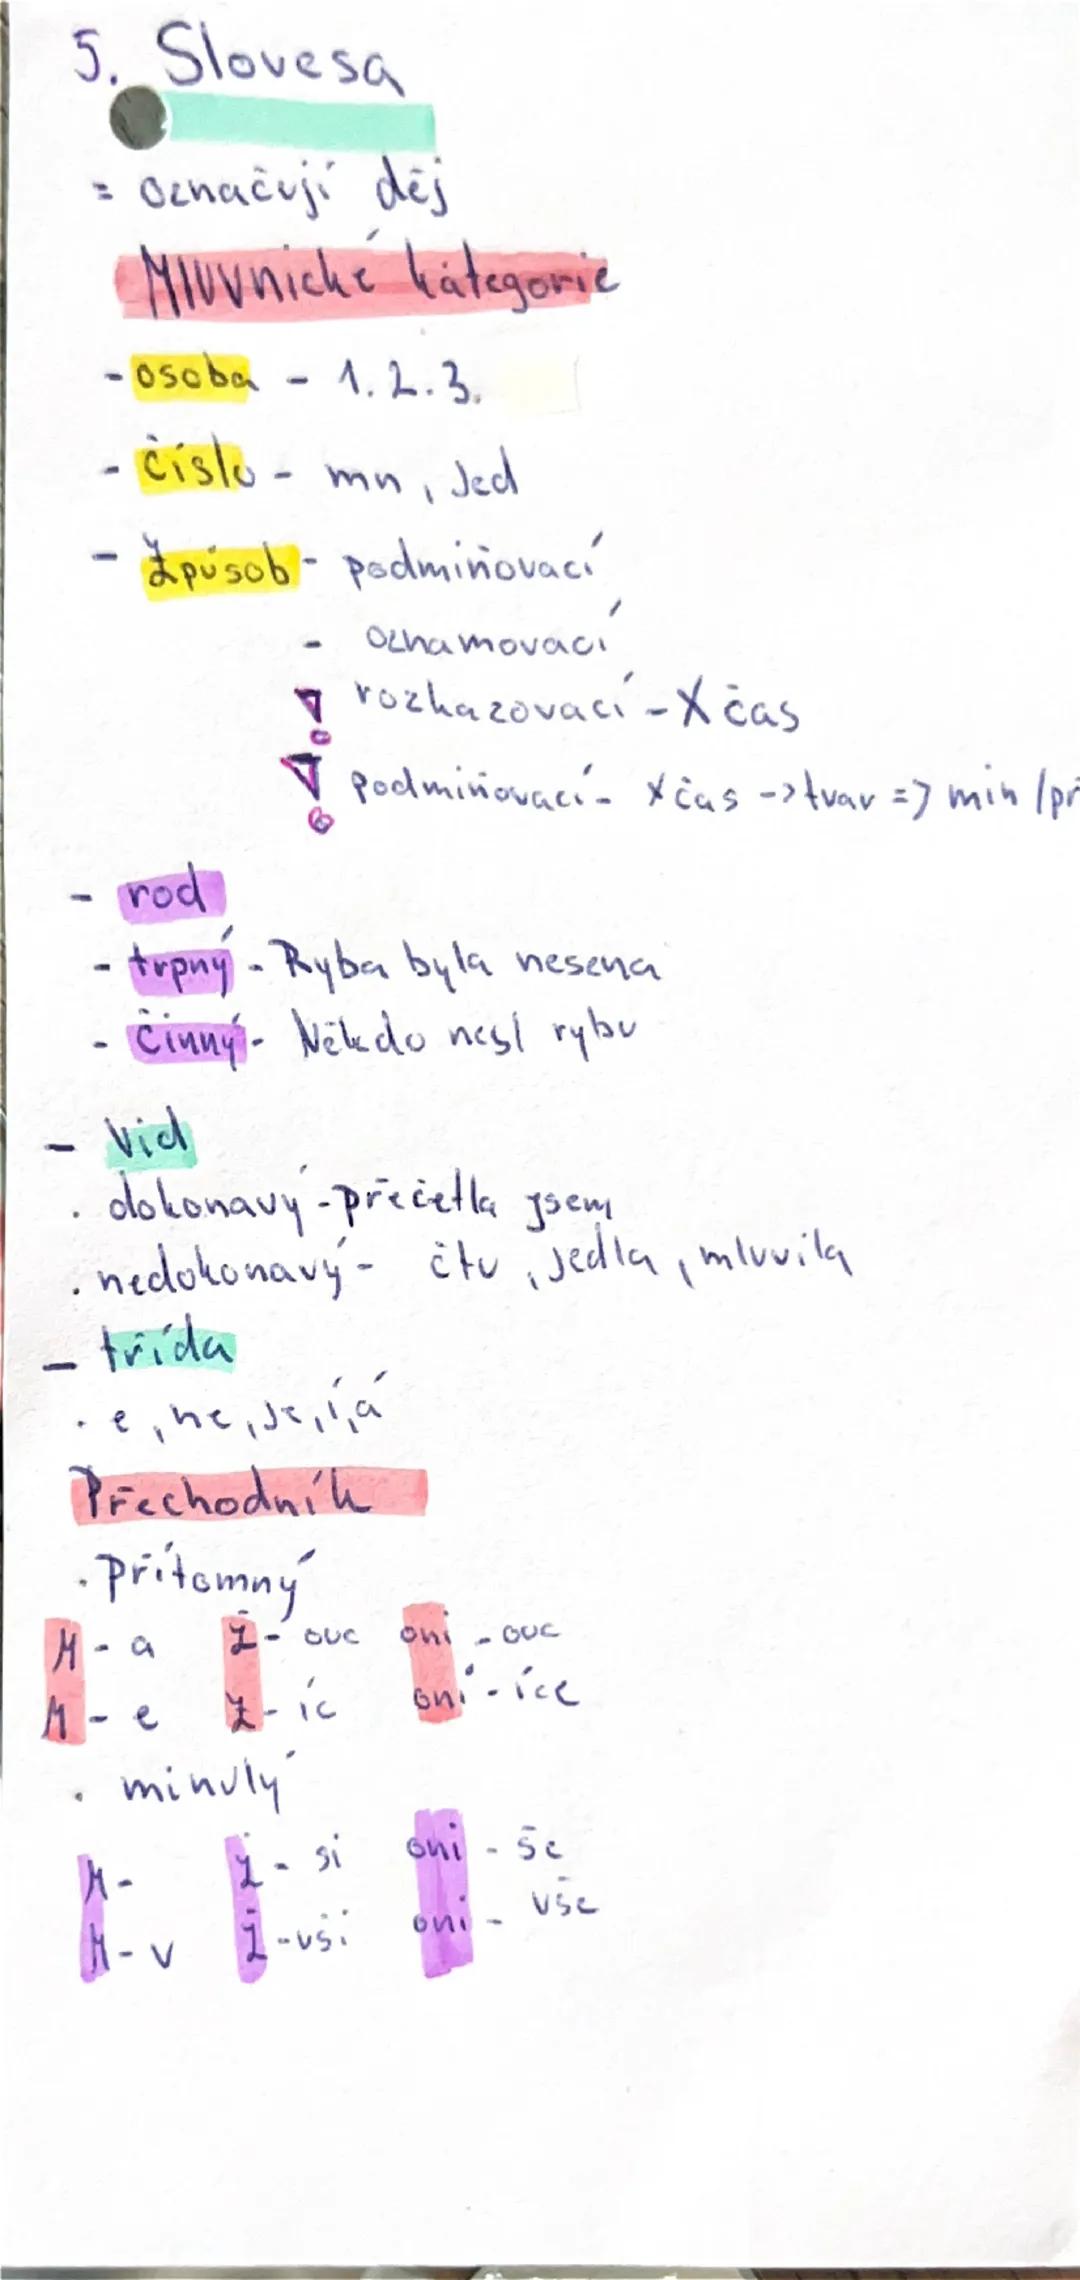 5. Slovesa
= označují děj
Mluvnické kategorie
- osoba - 1. 2. 3.
- číslo - mn, Jed
- Způsob - podmiňovací
- oznamovací
rozkazovací - X čas
podmiňovací - X čas -> tvar => min /př
- rod
- trpný - Ryba byla nesena
- činný - Někdo nesl rybu
- Vid
. dokonavý - přečetla jsem
. nedokonavý - čtu, Jedla, mluvila
- třída
. e, ne, je, í, á
Přechodník
. Přítomný
M - a Ž - ouc oni - ouc
M - e Ž - íc oni - íce
. minulý
M - Ž - si oni - še
M - v Ž - vši oni - vše